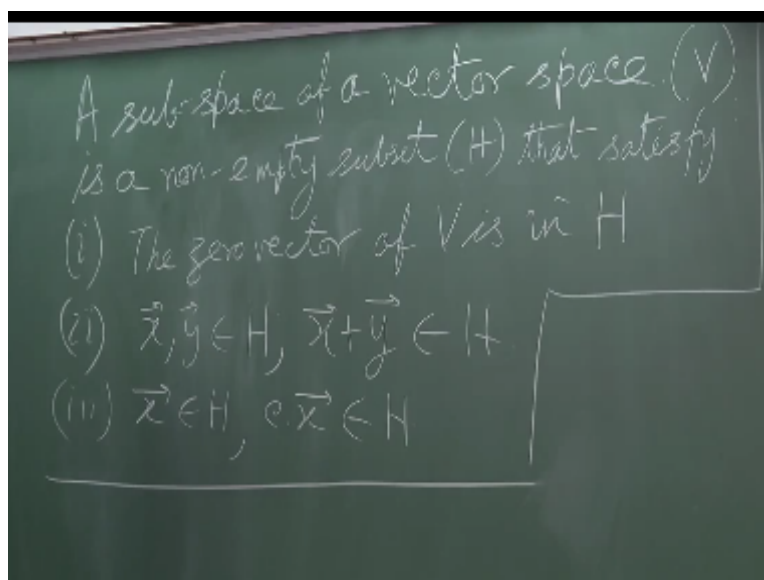 A sub-space of a vector space (V)
is a non-empty subset (H) that satisfy:
(i) The zero vector of V is in H
(ii) x⃗, y⃗ ∈ H, x⃗ + y⃗ ∈ H
(iii) x⃗ ∈ H, c.x⃗ ∈ H